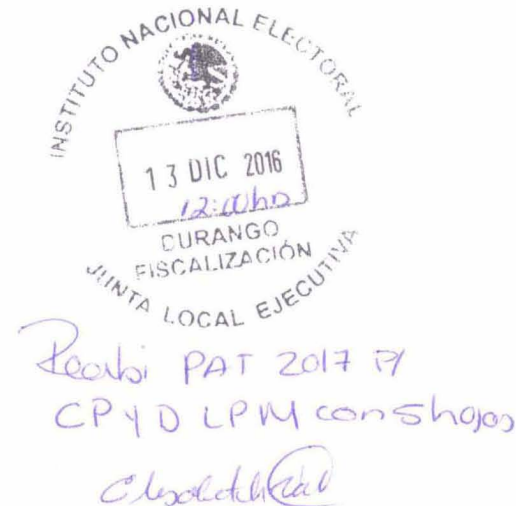 INSTITUTO NACIONAL ELECTORAL
13 DIC 2016
12:00hrs
DURANGO
FISCALIZACIÓN
JUNTA LOCAL EJECUTIVA
Recibi PAT 2017 P/
CPYD LPM con 5 hojas